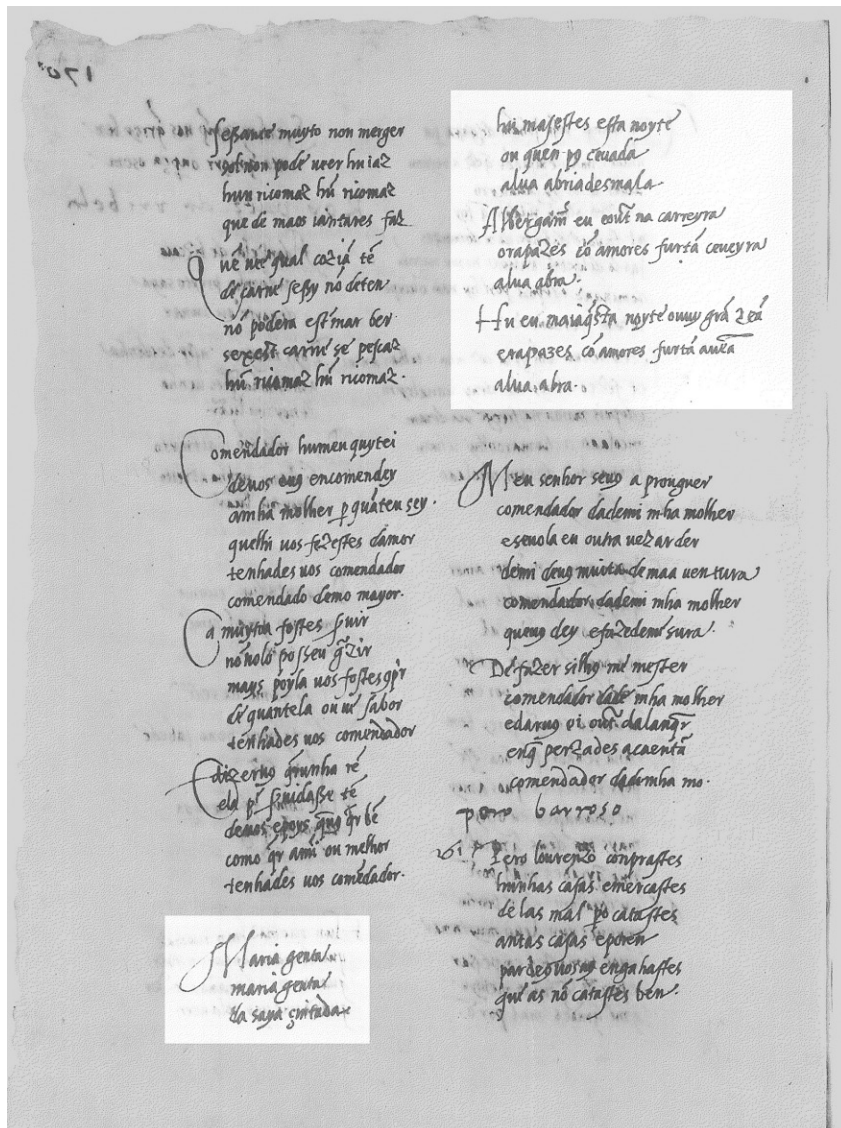 170
sessante muyto non merger
pol non pode veer hu iaz
huu ricomaz hũ ricomaz
que de maos iantares faz
Quẽ vee qual coziã tẽ
de carne sessy nõ deten
nõ podera estmar ben
sexest carne se pescaz
hũ ricomaz hũ ricomaz.
Comendador humen quytei
devos eug encomendey
amha molher p quãteu sey.
quelhi vos fezestes damor
tenhades vos comendador
comendado demo mayor.
Ca muyto fostes suir
nõ nolo posseu gzir
mays poyla vos fostes
de quantela ouve sabor
tenhades vos comendador
E dizervg grunha rẽ
ela por suidasse tẽ
devos epoys qvg qr bẽ
como qr ami ou melhor
tenhades vos comẽdador.
Maria genta
maria genta
da saya cintada
hu masestes esta noyte
ou quen pg cevada
alva abriadesmala.
Albergam eu eout na carreyra
orapazes cõ amores furtã ceveyra
alva abra.
Hu eu maiaqsta noyte ouvy grã zeã
erapazes cõ amores furtã aveã
alva abra.
Meu senhor sevg a prouguer
comendador dademi mha molher
esevola eu outra vez ar der
demi deug muita de maa ventura
comendador dademi mha molher
quevg dey efazedemi sura.
De fazer filhg mi mester
comendador dade mha molher
edarvg ei out dalanqr
enq perzades acaentã
comendador dademha mo.
pero barroso
Pero lourenzo conprastes
huunhas casas emercastes
delas mal po catastes
antas casas eporen
pardeg vosvg enganastes
que as nõ catastes ben.